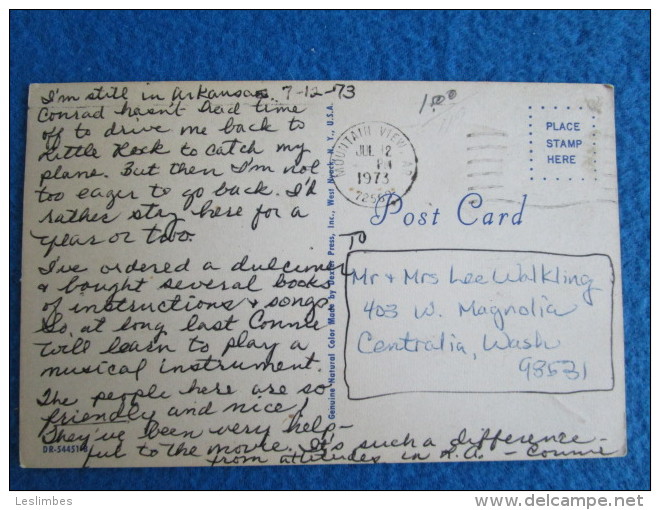 I'm still in Arkansas. 7-12-73
Conrad hasn't had time
off to drive me back to
Little Rock to catch my
plane. But then I'm not
too eager to go back. I'd
rather stay here for a
year or two.
I've ordered a dulcimer
& bought several books
of instructions & songs
So at long last Connie
will learn to play a
musical instrument.
The people here are so
friendly and nice!
They've been very help-
ful to the movie. It's such a difference
from attitudes in L.A. - Connie
DR-54451-B
Genuine Natural Color Made by Dexter Press, Inc., West Nyack, N. Y., U.S.A.
1.00
MOUNTAIN VIEW, AR
JUL 12
PM
1973
72560
PLACE
STAMP
HERE
Post Card
TO
Mr & Mrs Lee Walkling
403 W. Magnolia
Centralia, Wash
98531
Leslimbes
delcampe.net